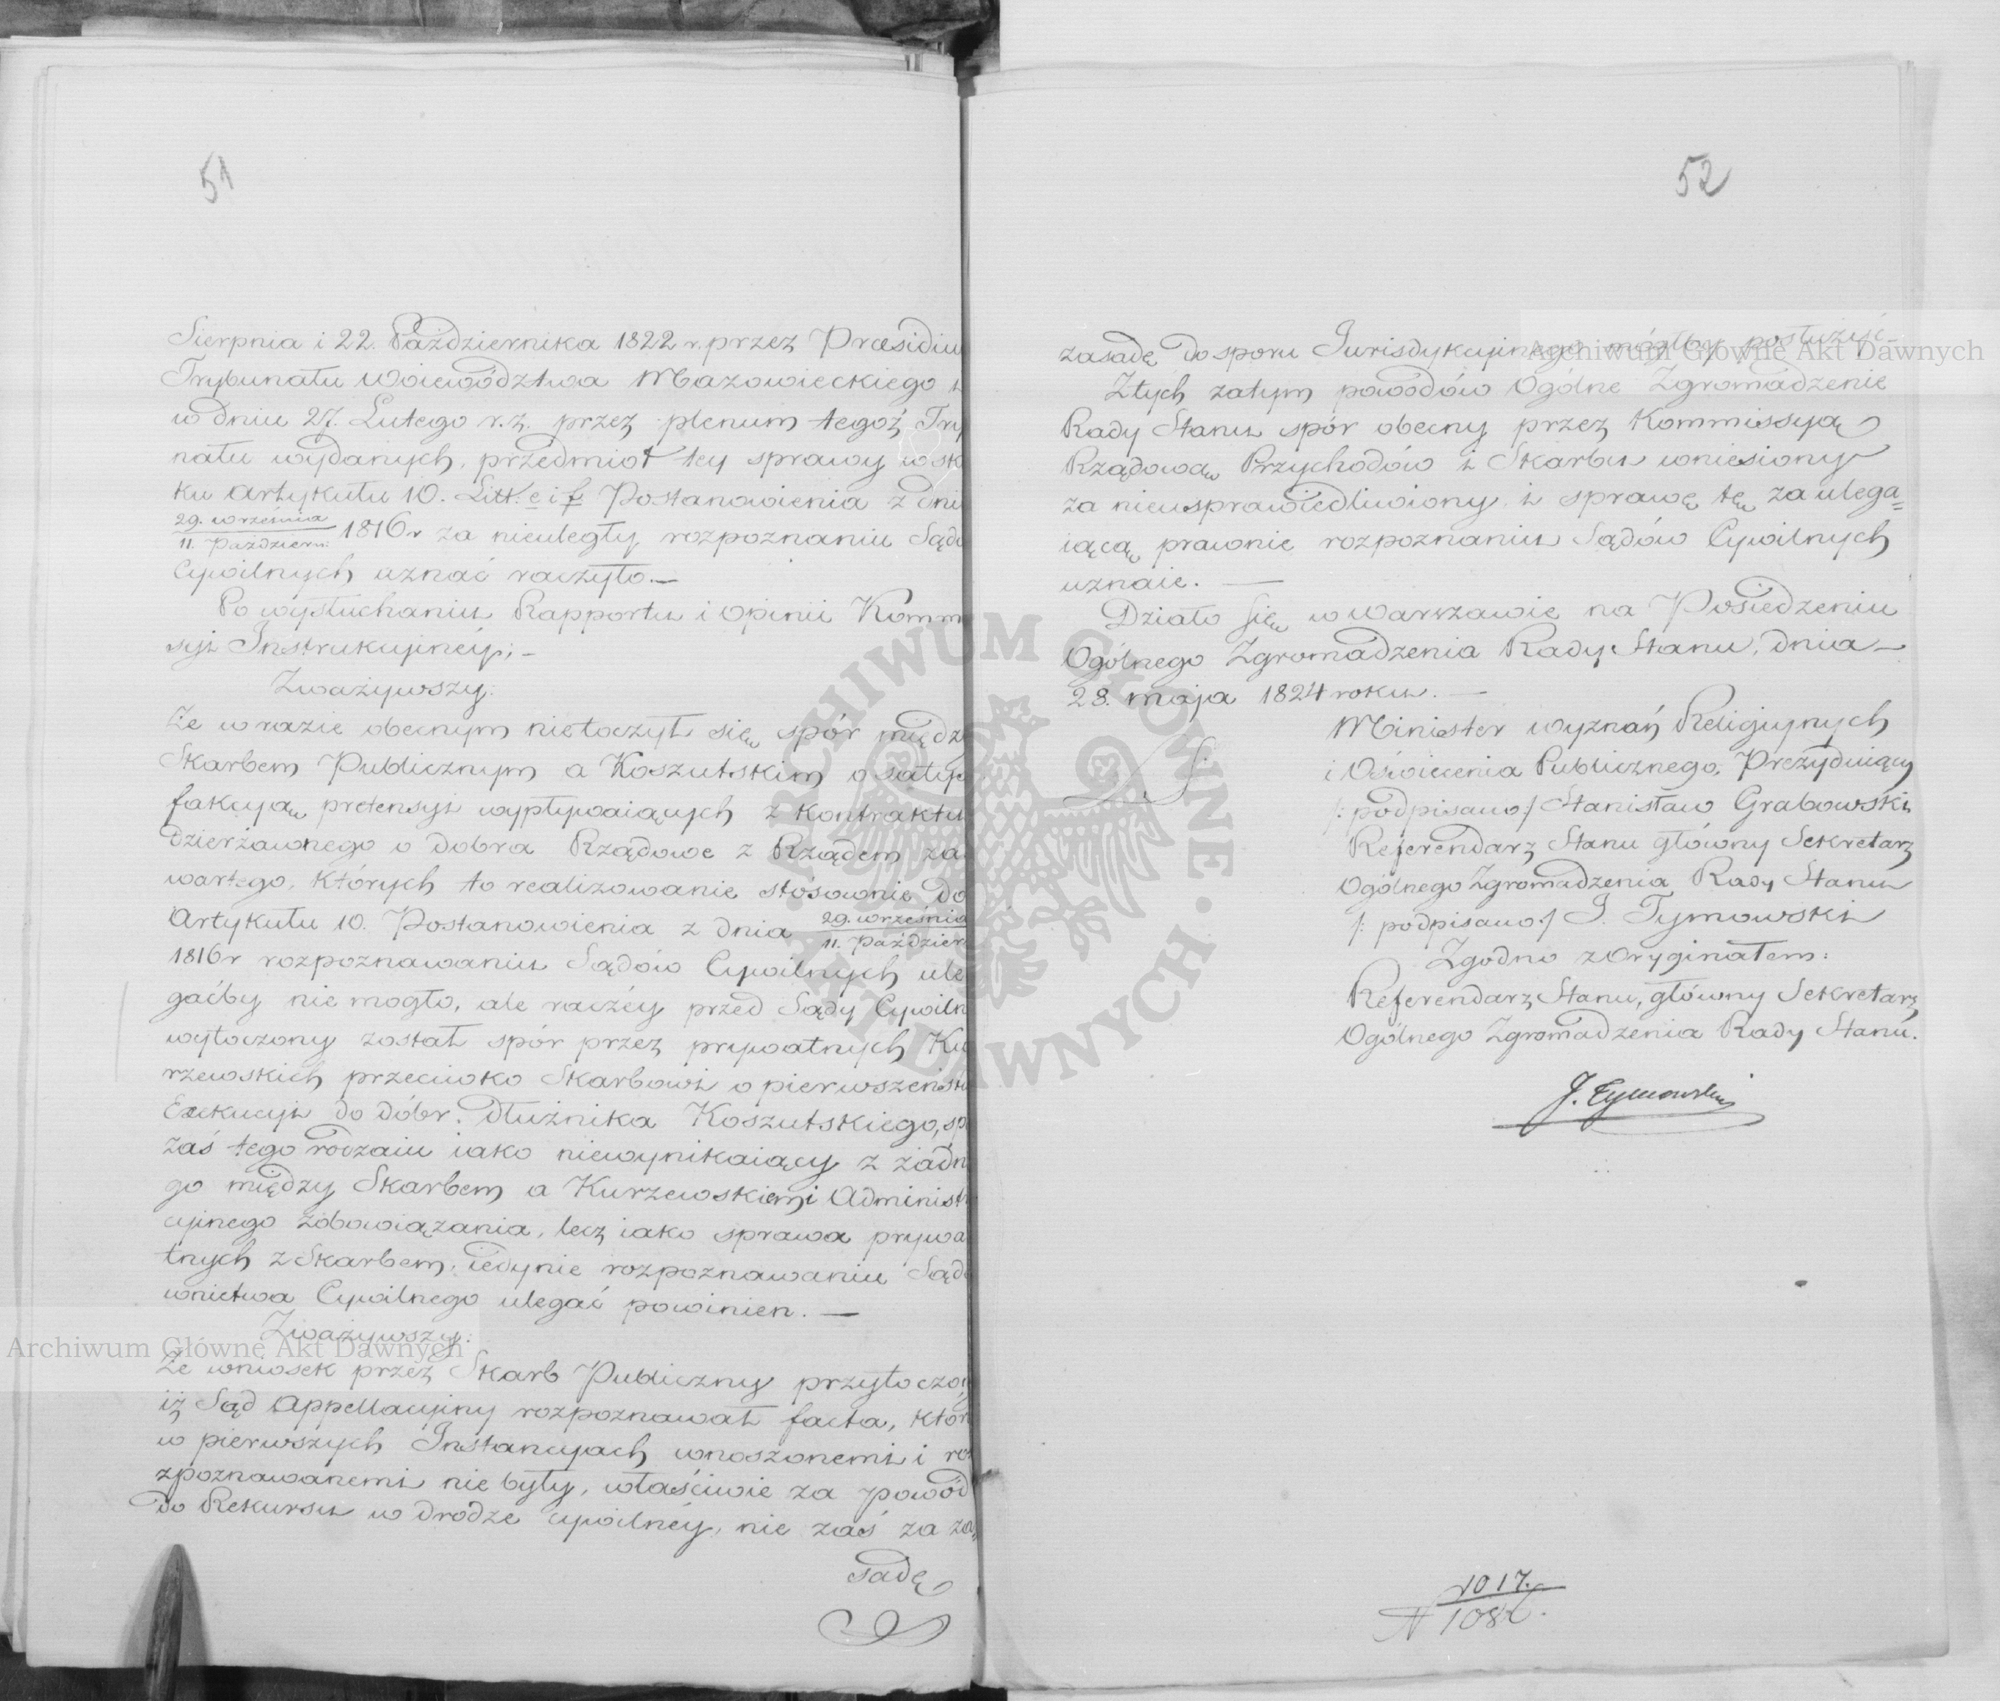 51
Sierpnia i 22. Października 1822 r. przez Præsidiu
Trybunału Woiewództwa Mazowieckiego i
w dniu 27. Lutego r. z. przez plenum tegoż Try
nału wydanych, przedmiot tey sprawy w sk
ku Artykułu 10. Litt: e i f Postanowienia z dni
29. września
11. Październ: 1816 r za nieuległy rozpoznaniu Sądó
Cywilnych uznać raczyło.—
Po wysłuchaniu Rapportu i Opinii Komm
syi Instrukcyinéy;—
Zważywszy:
Że w razie obecnym nietoczył się spór międz
Skarbem Publicznym a Koszutskim o satys
fakcyą pretensyi wypływaiących z Kontraktu
dzierżawnego o dobra Rządowe z Rządem za
wartego, których to realizowanie stósownie do
Artykułu 10. Postanowienia z dnia 29. września
11. Paździer
1816 r rozpoznawaniu Sądów Cywilnych ule
gaćby nie mogło, ale raczéy przed Sądy Cywiln
wytoczony został spór przez prywatnych Ku
rzewskich przeciwko Skarbowi o pierwszeńst
Exekucyi do dóbr dłużnika Koszutskiego, sp
zaś tego rodzaiu iako niewynikaiący z żadn
go między Skarbem a Kurzewskiemi Administr
cyinego zobowiązania, lecz iako sprawa prywa
tnych z Skarbem, iedynie rozpoznawaniu Sądo
wnictwa Cywilnego ulegać powinien.—
Zważywszy:
Że wniosek przez Skarb Publiczny przytoczo
iż Sąd Appellacyiny rozpoznawał facta, któr
w pierwszych Instancyach wnoszonemi i ro
zpoznawanemi nie były, właściwie za powód
do Rekursu w drodze cywilnéy, nie zaś za za„
sadę
52
zasadę do sporu Jurisdykcyinego mógłby posłużyć—
Z tych zatym powodów Ogólne Zgromadzenie
Rady Stanu spór obecny przez Kommissyą
Rządową Przychodów i Skarbu wniesiony
za nieusprawiedliwiony i sprawę tę za ulega=
iącą prawnie rozpoznaniu Sądów Cywilnych
uznaie.—
Działo się w Warszawie na Posiedzeniu
Ogólnego Zgromadzenia Rady Stanu, dnia—
28. maja 1824 roku.—
Minister wyznań Religiynych
i Oświecenia Publicznego, Prezyduiący
/: podpisano :/ Stanisław Grabowski
Referendarz Stanu główny Sekretarz
Ogólnego Zgromadzenia Rady Stanu
/: podpisano :/ J. Tymowski
Zgodno z Oryginałem:
Referendarz Stanu, główny Sekretarz
Ogólnego Zgromadzenia Rady Stanu.
J. Tymowski
1017.
N
Archiwum Główne Akt Dawnych
Archiwum Główne Akt Dawnych
ARCHIWUM GŁÓWNE AKT DAWNYCH